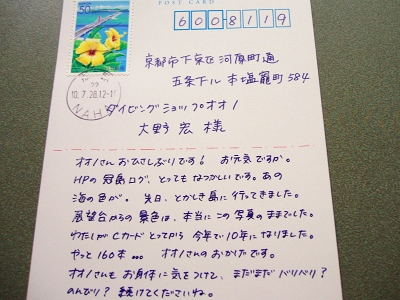 POST CARD
50
6008119
10.7.28.12-1
NAHA
京都市下京区河原町通
五条下ル 本塩竈町584
ダイビングショップオオノ
大野 宏 様
オオノさん おひさしぶりです! お元気ですか。
HPの冠島ログ、とってもなつかしいです。あの
海の色が。 先日、とかしき島に行ってきました。
展望台からの景色は、本当にこの写真のままでした。
わたしがCカードとってから 今年で10年になりました。
やっと160本... オオノさんのおかげです。
オオノさんもお身体に気をつけて、まだまだバリバリ?
のんびり? 続けてくださいね。